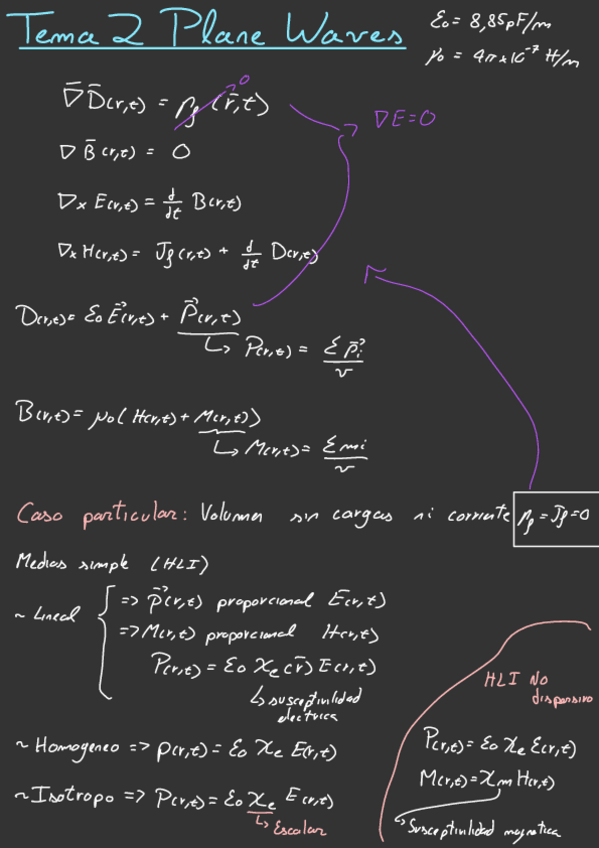 Tema 2 Plane Waves
ε₀ = 8,85pF/m
μ₀ = 4π×10⁻⁷ H/m
∇̄ D̄(r,t) = ρf (r̄,t) → 0
∇E=0
∇ B̄(r,t) = 0
∇x E(r,t) = d/dt B(r,t)
∇x H(r,t) = Jf(r,t) + d/dt D(r,t)
D(r,t) = ε₀ E⃗(r,t) + P⃗(r,t)
↳ P(r,t) = Σ p⃗i / v
B(r,t) = μ₀( H(r,t) + M(r,t))
↳ M(r,t) = Σ mi / v
Caso particular: Volumen sin cargas ni corriente ρf = Jf = 0
Medios simple (HLI)
~ Lineal
=> P⃗(r,t) proporcional E(r,t)
=> M(r,t) proporcional H(r,t)
P(r,t) = ε₀ χe(r̄) E(r,t)
↳ susceptivilidad
electrica
~ Homogeneo => P(r,t) = ε₀ χe E(r,t)
~ Isotropo => P(r,t) = ε₀ χe E(r,t)
↳ Escalar
HLI NO
dispersivo
P(r,t) = ε₀ χe E(r,t)
M(r,t) = χm H(r,t)
↳ Susceptivilidad magnetica